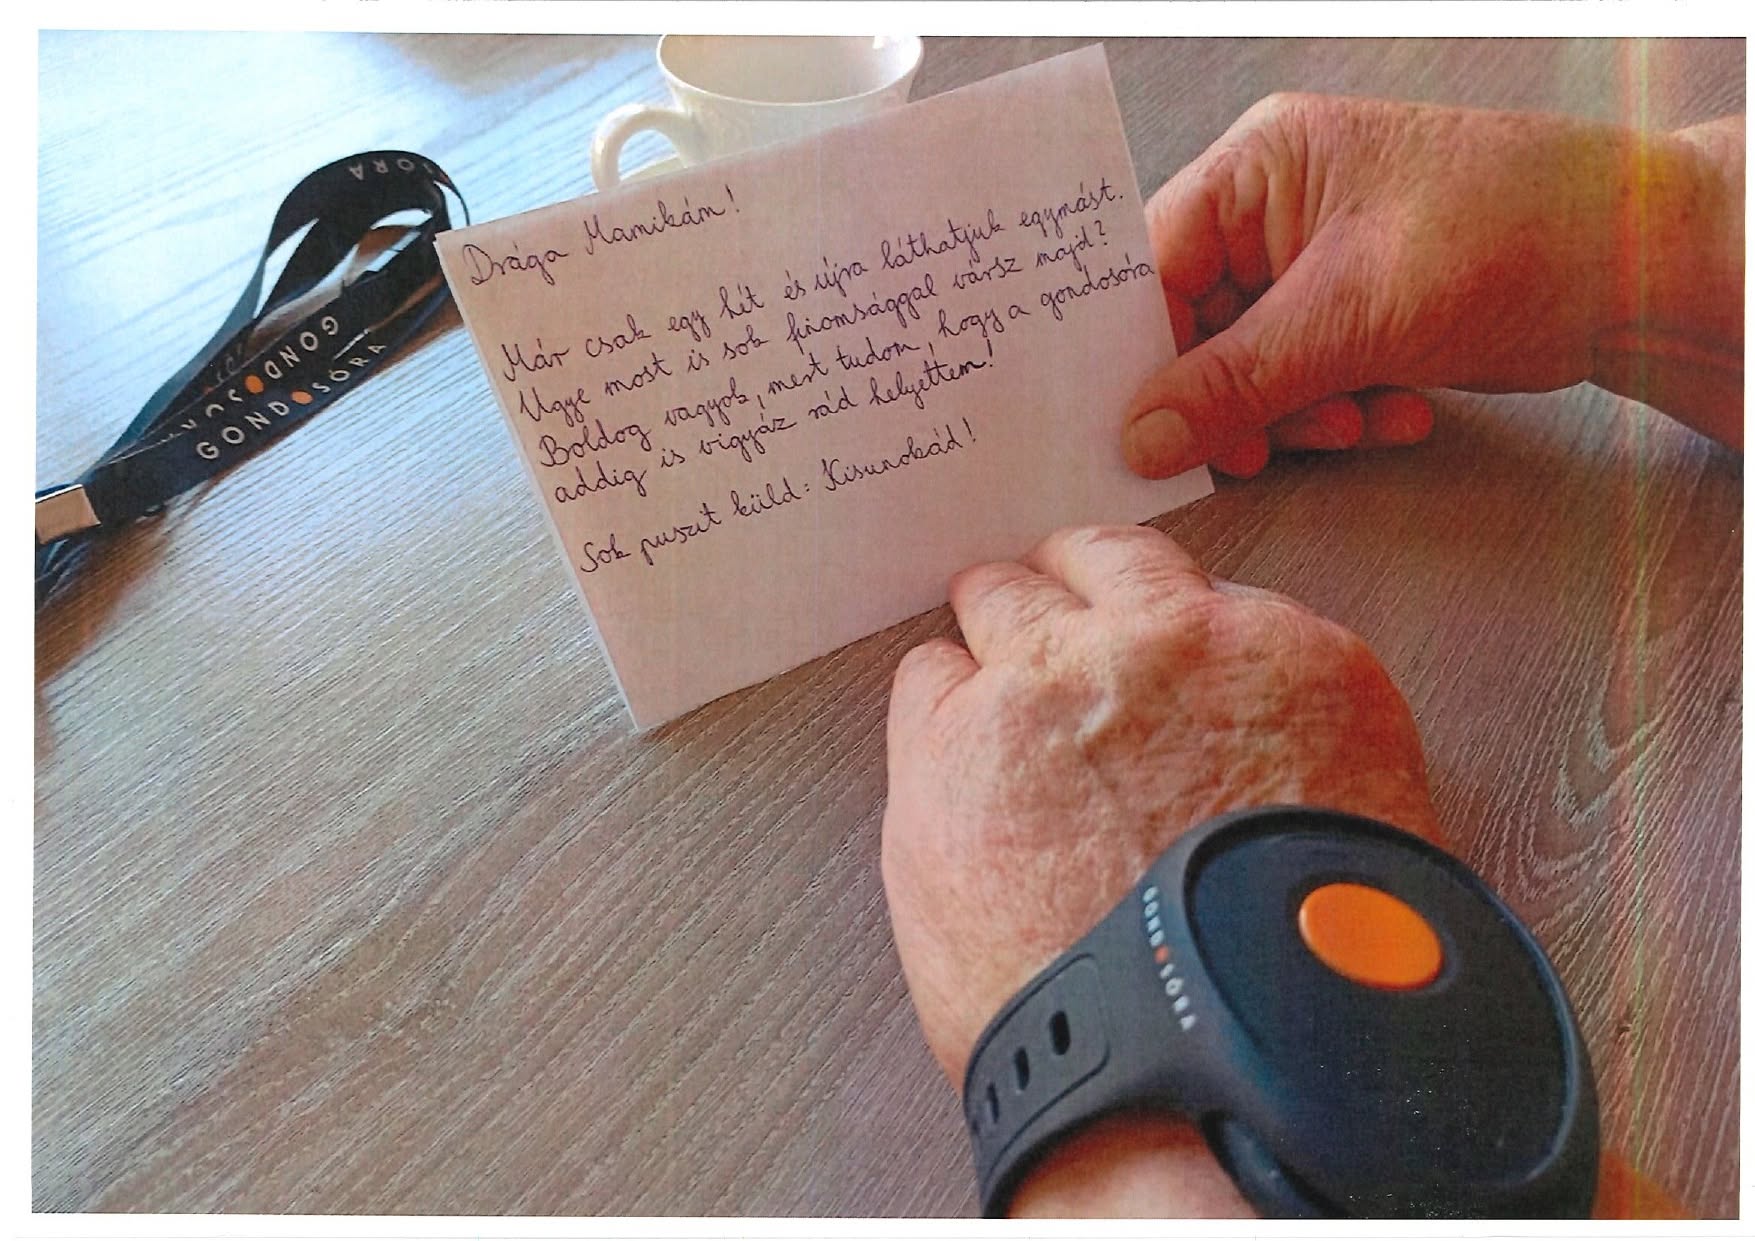 Drága Mamikám!
Már csak egy hét és újra láthatjuk egymást.
Ugye most is sok finomsággal vársz majd?
Boldog vagyok, mert tudom, hogy a gondosóra
addig is vigyáz rád helyettem!
Sok puszit küld: Kisunokád!
SÓRA
GONDOSÓRA
GONDOSÓRA
GONDOSÓRA